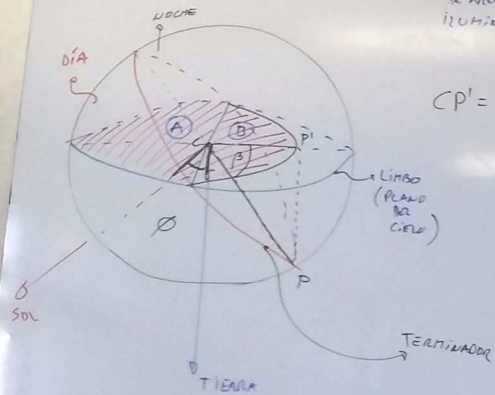 NOCHE
ILUMIN
DÍA
CP' =
A
B
P'
C
β
LIMBO
(PLANO
DEL
CIELO)
Ø
P
SOL
TERMINADOR
TIERRA